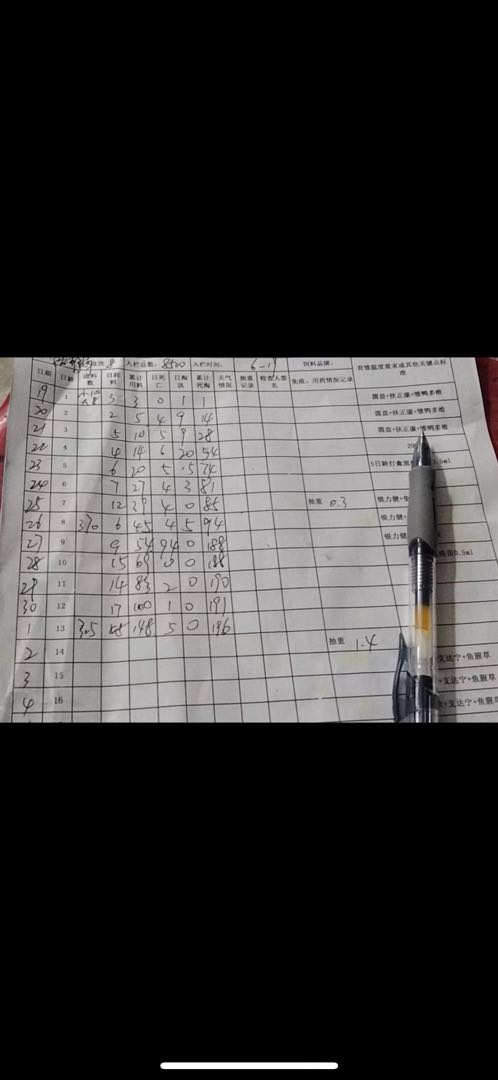 批次 8 入栏总数：8500 入栏时间： 6-19 饲料品牌：
日期 日龄 进料数 日耗料 累计用料 日死亡 日淘汰 累计死淘 天气情况 抽重记录 检查人签名 免疫、用药情况记录 育雏温度要求或其他关键点标准
19 1 3 3 0 1 1 圆益+扶正康+雏鸭多维
20 2 2 5 4 9 14 圆益+扶正康+雏鸭多维
21 3 5 10 5 9 28 圆益+扶正康+雏鸭多维
22 4 4 14 6 20 54
23 5 6 20 5 15 74 5日龄打禽流 ml
24 6 7 27 4 3 81
25 7 12 39 4 0 85 抽重 0.3 锐力健+
26 8 370 6 45 4 5 94 锐力健+
27 9 9 54 94 0 188 锐力健+
28 10 15 69 0 0 188 0.5ml
29 11 14 83 2 0 190
30 12 17 100 1 0 191
1 13 325 48 148 5 0 196
2 14 抽重 1.4 +支达宁+鱼腥草
3 15 +支达宁+鱼腥草
4 16 +支达宁+鱼腥草